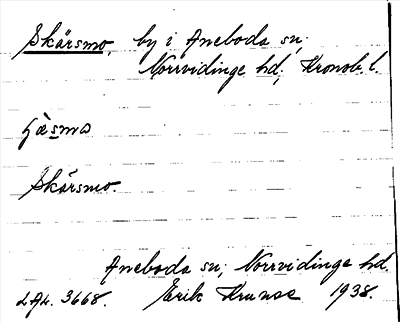 Skärsmo, by i Aneboda sn,
Norrvidinge hd, Kronob. l.
Skärsmo.
Aneboda sn, Norrvidinge hd.
LAL. 3668. Erik 1938.